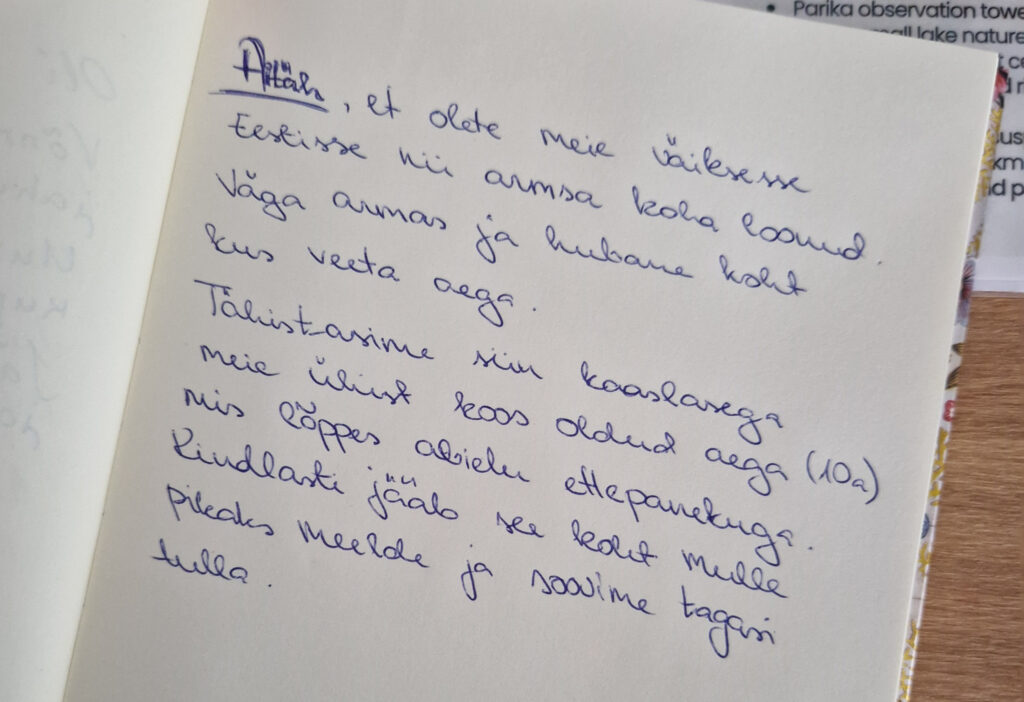 Aitäh, et olete meie väiksesse
Eestisse nii armsa koha loonud.
Väga armas ja hubane koht
kus veeta aega.
Tähistasime siin kaaslasega
meie ühist koos oldud aega (10a)
mis lõppes abielu ettepanekuga.
Kindlasti jääb see koht mulle
pikaks meelde ja soovime tagasi
tulla.
• Parika observation towe
all lake nature